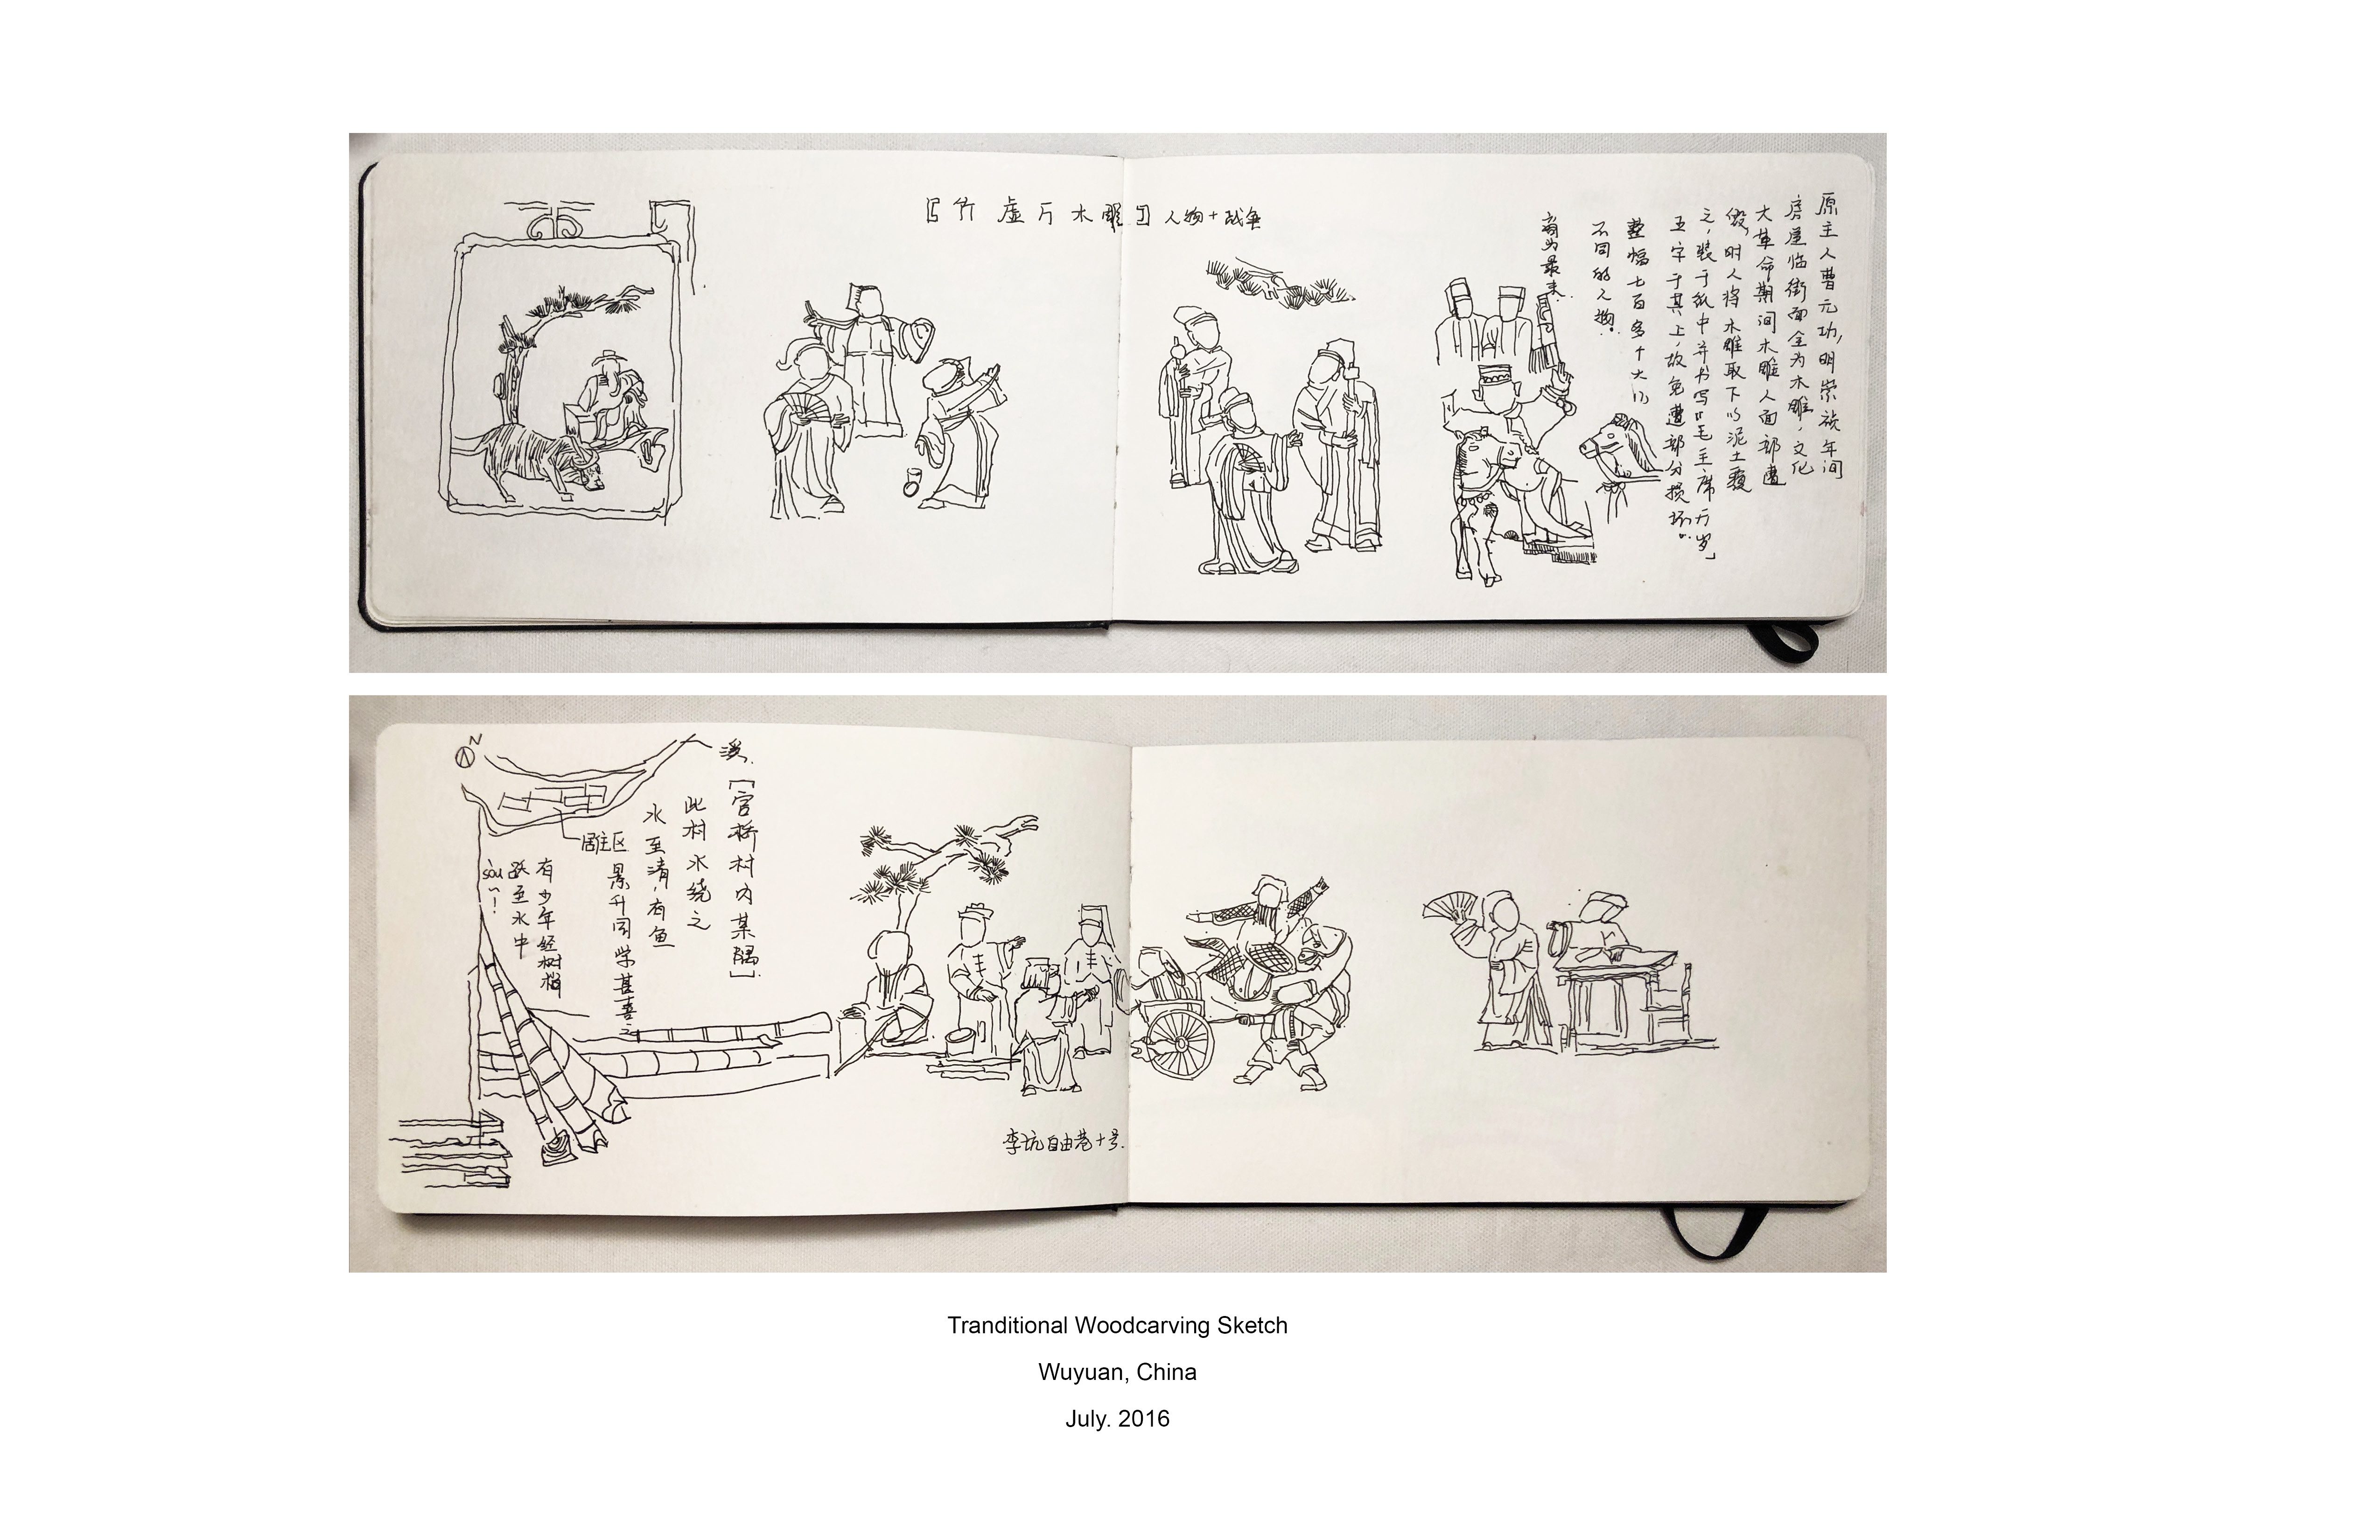 『竹虚厅木雕』人物+战争
原主人曹元功,明崇祯年间
房屋临街面全为木雕,文化
大革命期间木雕人面部遭
毁,时人将木雕取下以泥土覆
之,装于纸中并书写『毛主席万岁』
五字于其上,故免遭部分损坏。
整幅七百多个大小
不同的人物.
为最
N
溪.
[官桥村内某隅].
此村水绕之
水至清,有鱼
景升同学甚喜之
居住区
有少年经树梢
跃至水中
sòu~!
李坑自由巷十号.
Tranditional Woodcarving Sketch
Wuyuan, China
July. 2016